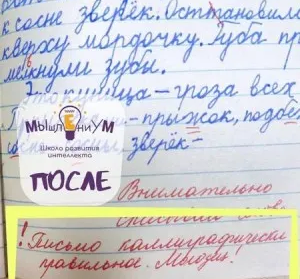 к сосне зверёк. Остановил
кверху мордочку. Зуба
мелкнули зубы.
Это куница – гроза всех
прыжок, подбе
зверёк –
МыШЛЕниУМ
Школа развития
интеллекта
ПОСЛЕ
Внимательно
! Письмо каллиграфически
правильное.